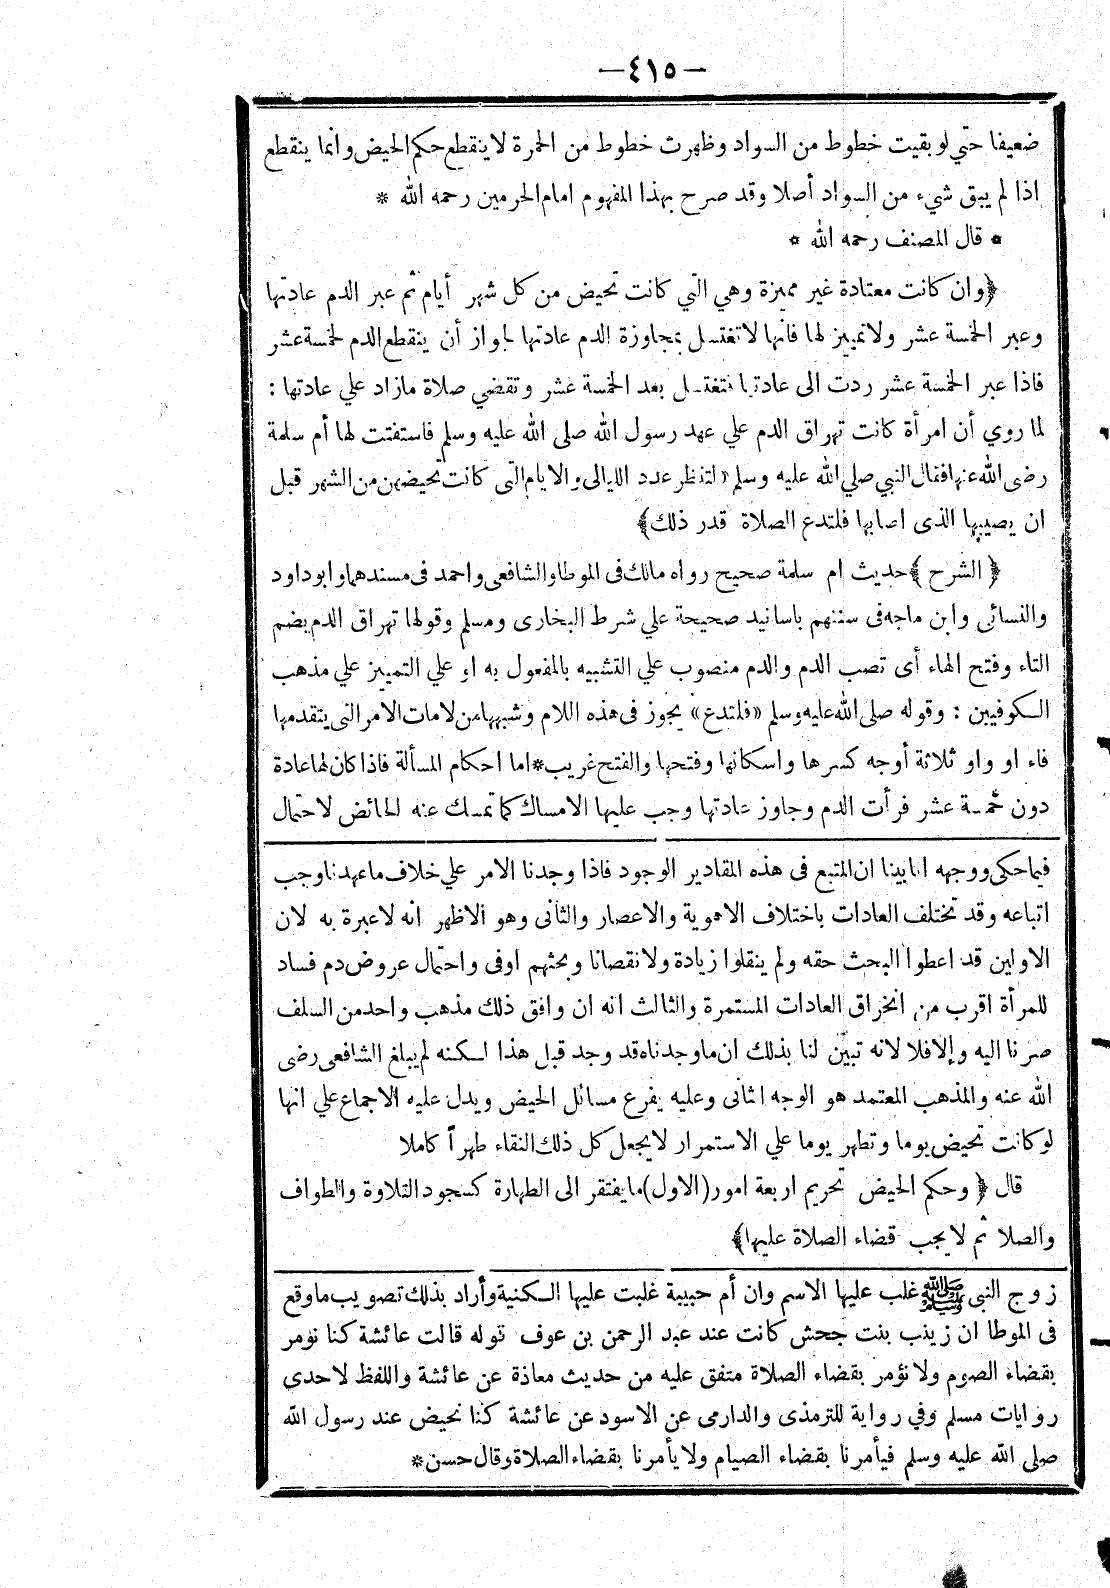 —٤١٥—
ضعيفا حتي لو بقيت خطوط من السواد وظهرت خطوط من الحمرة لا ينقطع حكم الحيض وانما ينقطع
اذا لم يبق شيء من السواد أصلا وقد صرح بهذا المفهوم امام الحرمين رحمه الله *
* قال المصنف رحمه الله *
﴿وان كانت معتادة غير مميزة وهي التي كانت تحيض من كل شهر أيام ثم عبر الدم عادتها
وعبر الخمسة عشر ولا تمييز لها فانها لا تغتسل بمجاوزة الدم عادتها لجواز أن ينقطع الدم لخمسة عشر
فاذا عبر الخمسة عشر ردت الى عادتها فتغتسل بعد الخمسة عشر وتقضي صلاة مازاد علي عادتها :
لما روي أن امرأة كانت تهراق الدم علي عهد رسول الله صلى الله عليه وسلم فاستفتت لها أم سلمة
رضى الله عنها فقال النبي صلي الله عليه وسلم «لتنظر عدد الليالى والايام التى كانت تحيضهن من الشهر قبل
ان يصيبها الذى اصابها فلتدع الصلاة قدر ذلك﴾
﴿ الشرح ﴾ حديث ام سلمة صحيح رواه مالك فى الموطا والشافعى واحمد فى مسندهما وابو داود
والنسائى وابن ماجه فى سننهم باسانيد صحيحة علي شرط البخارى ومسلم وقولها تهراق الدم بضم
التاء وفتح الهاء أى تصب الدم والدم منصوب علي التشبيه بالمفعول به او علي التمييز علي مذهب
الكوفيين : وقوله صلى الله عليه وسلم «فلتدع» يجوز فى هذه اللام وشبهها من لامات الامر التى يتقدمها
فاء او واو ثلاثة أوجه كسرها واسكانها وفتحها والفتح غريب * اما احكام المسألة فاذا كان لها عادة
دون خمسة عشر فرأت الدم وجاوز عادتها وجب عليها الامساك كما تمسك عنه الحائض لاحتمال
فيما حكى ووجهه انا بينا ان المتبع فى هذه المقادير الوجود فاذا وجدنا الامر علي خلاف ما عهدنا وجب
اتباعه وقد تختلف العادات باختلاف الاهوية والاعصار والثانى وهو الاظهر انه لا عبرة به لان
الاولين قد اعطوا البحث حقه ولم ينقلوا زيادة ولا نقصانا وبحثهم اوفى واحتمال عروض دم فساد
للمرأة اقرب من انخراق العادات المستمرة والثالث انه ان وافق ذلك مذهب واحد من السلف
صرنا اليه وإلا فلا لانه تبيّن لنا بذلك ان ما وجدناه قد وجد قبل هذا لكنه لم يبلغ الشافعى رضى
الله عنه والمذهب المعتمد هو الوجه الثانى وعليه يفرع مسائل الحيض ويدل عليه الاجماع علي انها
لو كانت تحيض يوما وتطهر يوما علي الاستمرار لا يجعل كل ذلك النقاء طهراً كاملا
قال ﴿ وحكم الحيض تحريم اربعة امور (الاول) ما يفتقر الى الطهارة كسجود التلاوة والطواف
والصلا ثم لا يجب قضاء الصلاة عليها﴾
زوج النبى ﷺ غلب عليها الاسم وان أم حبيبة غلبت عليها الكنية وأراد بذلك تصويب ما وقع
فى الموطا ان زينب بنت جحش كانت عند عبد الرحمن بن عوف قوله قالت عائشة كنا نؤمر
بقضاء الصوم ولا نؤمر بقضاء الصلاة متفق عليه من حديث معاذة عن عائشة واللفظ لاحدى
روايات مسلم وفي رواية للترمذى والدارمى عن الاسود عن عائشة كنا نحيض عند رسول الله
صلى الله عليه وسلم فيأمرنا بقضاء الصيام ولا يأمرنا بقضاء الصلاة وقال حسن *